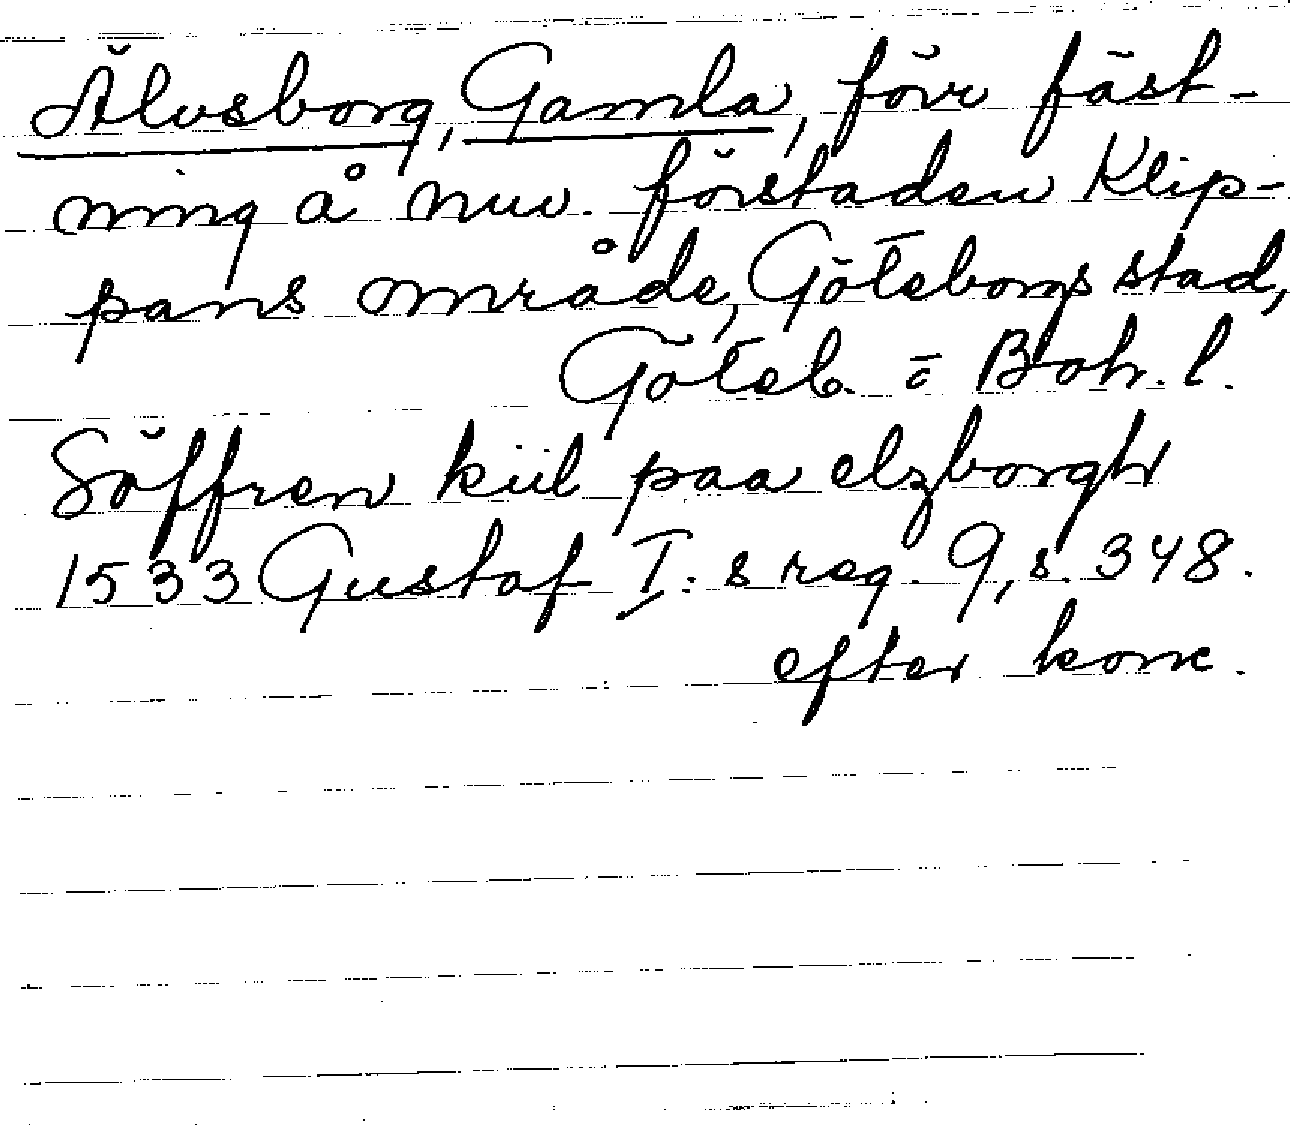 Älvsborg, Gamla, förr fäst-
ning å nuv. förstaden Klip-
pans område, Göteborgs stad,
Göteb. o Boh. l.
Söffren kiil paa elzborgh
1533 Gustaf I:s reg. 9, s. 348.
efter konc.